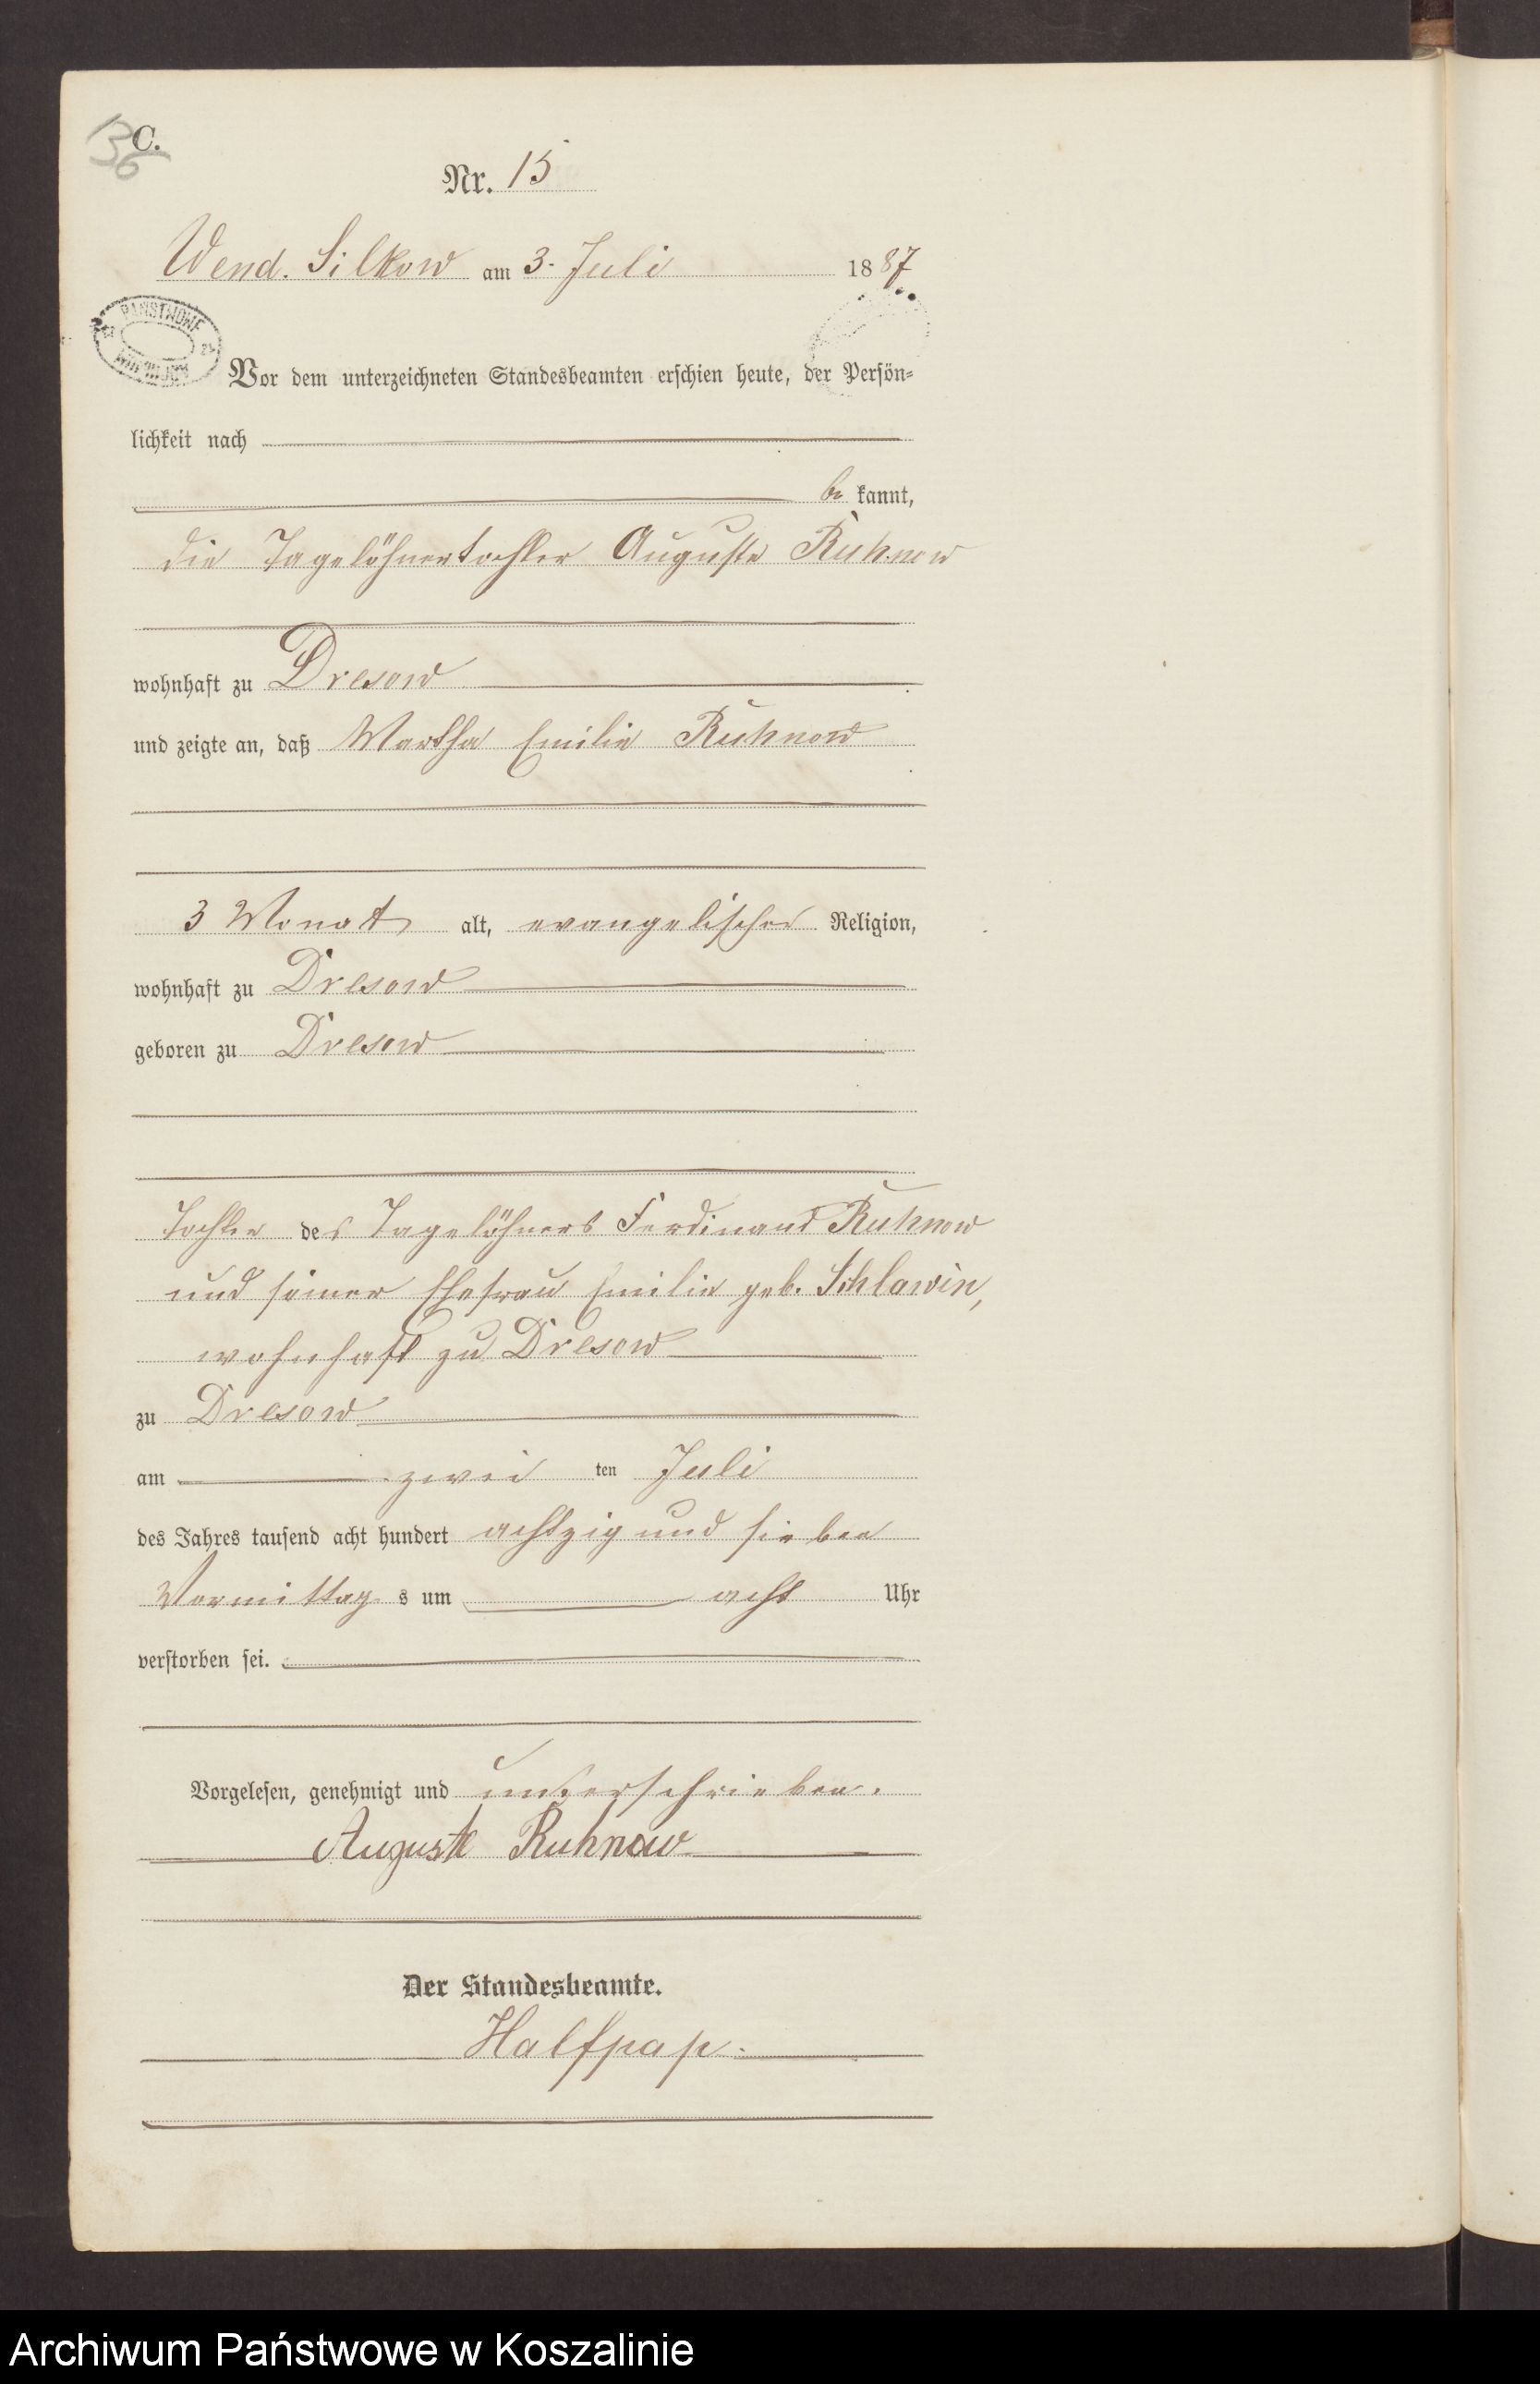 C.
136
Nr. 15
Wend. Silkow am 3. Juli 1887
PAŃSTWOWE
Vor dem unterzeichneten Standesbeamten erschien heute, der Persön-
lichkeit nach
be kannt,
die Tagelöhnertochter Auguste Ruhnow
wohnhaft zu Dresow
und zeigte an, daß Martha Emilie Ruhnow
3 Monat alt, evangelischer Religion,
wohnhaft zu Dresow
geboren zu Dresow
Tochter des Tagelöhners Ferdinand Ruhnow
und seiner Ehefrau Emilie geb. Schlawin,
wohnhaft zu Dresow
zu Dresow
am zwei ten Juli
des Jahres tausend acht hundert achtzig und sieben
Vormittag s um acht Uhr
verstorben sei.
Vorgelesen, genehmigt und unterschrieben.
Auguste Ruhnow
Der Standesbeamte.
Halfpap.
Archiwum Państwowe w Koszalinie